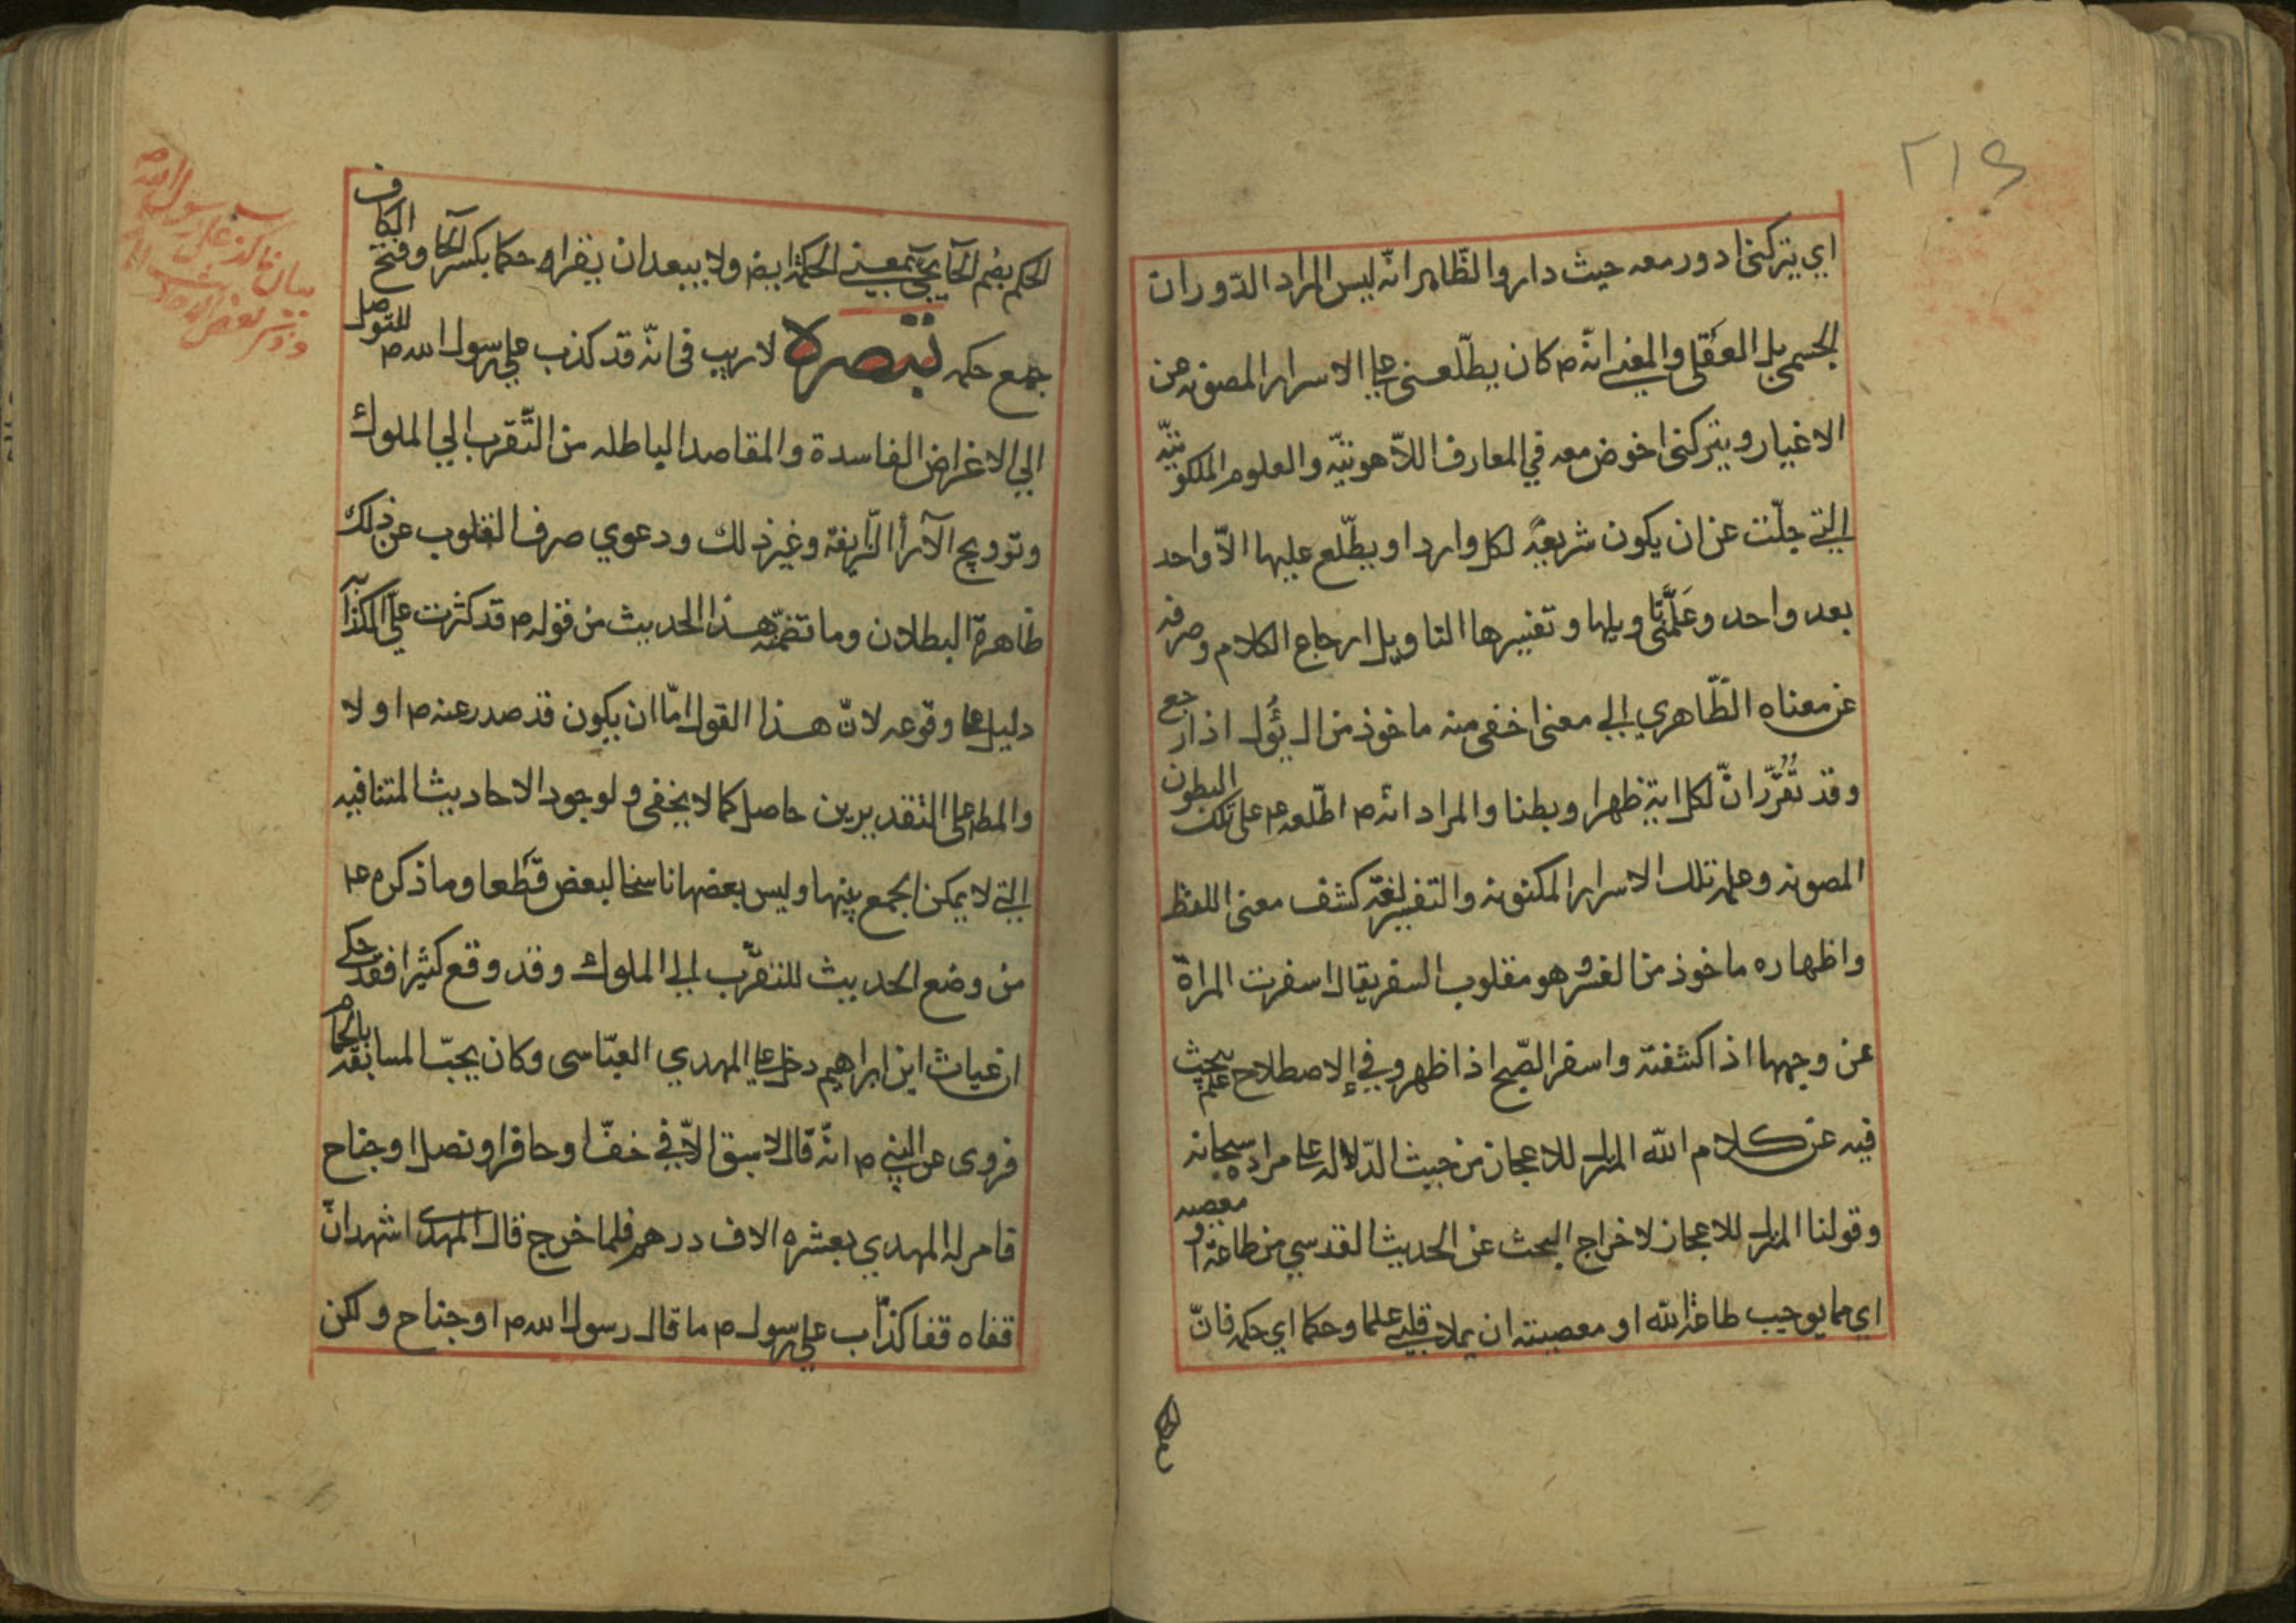 ٢١٤
اي يتركنى ادور معه حيث دار والظّاهر انّه ليس المراد الدّوران
الجسمي بل العقلي والمعني انّه ص كان يطّلعنى علي الاسرار المصونه عن
الاغيار ويتركنى اخوض معه في المعارف اللّاهوتيّه والعلوم الملكوتيّه
التي جلّت عن ان يكون شريعة لكل وارد او يطّلع عليها الّا واحد
بعد واحد وعَلَّمَنى تاويلها وتفسيرها التاويل ارجاع الكلام وصرفه
عن معناه الظّاهري الي معنى اخفى منه ماخوذ من ال يؤل اذا رجع
وقد تقرّر انّ لكل اية ظهرا وبطنا والمراد انّه ص اطّلعه ع على تلك البطون
المصونه وعلمه تلك الاسرار المكنونه والتفسير لغة كشف معنى اللفظ
واظهاره ماخوذ من الفسر وهو مقلوب السفر يقال اسفرت المراة
عن وجهها اذا كشفته واسفر الصّبح اذا ظهر وفي الاصطلاح علم يبحث
فيه عن كلام الله المنزل للاعجاز من حيث الدّلالة علي مراده سبحانه
وقولنا المنزل للاعجاز لاخراج البحث عن الحديث القدسي من طاعة او معصيه
اي مما يوجب طاعة الله او معصيته ان يملا قلبي علما وحكما اي حكمه فانّ
الحكم بضم الحآ يجئ بمعنى الحكمة ايضا ولا يبعد ان يقراه حكما بكسر الحآ وفتح الكاف
جمع حكمه تبصرة لا ريب فى انّه قد كذب علي رسول الله ص للتوصل
الي الاغراض الفاسدة والمقاصد الباطله من التّقرب الي الملوك
وترويج الآرآ الزّيفة وغير ذلك ودعوي صرف القلوب عن ذلك
ظاهرة البطلان وما تضمّنه هذا الحديث من قوله ص قد كثرت علي الكذّابه
دليل علي وقوعه لانّ هذا القول امّا ان يكون قد صدر عنه ص او لا
والمط على التقديرين حاصل كما لا يخفى ولوجود الاحاديث المتنافيه
التي لا يمكن الجمع بينها وليس بعضها ناسخا لبعض قطعا وما ذكره ع
من وضع الحديث للتقرّب الي الملوك وقد وقع كثيرا فقد حكي
ان غياث ابن ابراهيم دخل علي المهدي العبّاسى وكان يحبّ المسابقه بالحمام
فروى عن النبي ص انّه قال لا سبق الّا في خفّ او حافر او نصل او جناح
فامر له المهدي بعشره الاف درهم فلما خرج قال المهدي اشهد انّ
قفاه قفا كذّاب علي رسول ص ما قال رسول الله ص او جناح ولكن
بيان ما كذب على رسول الله ص